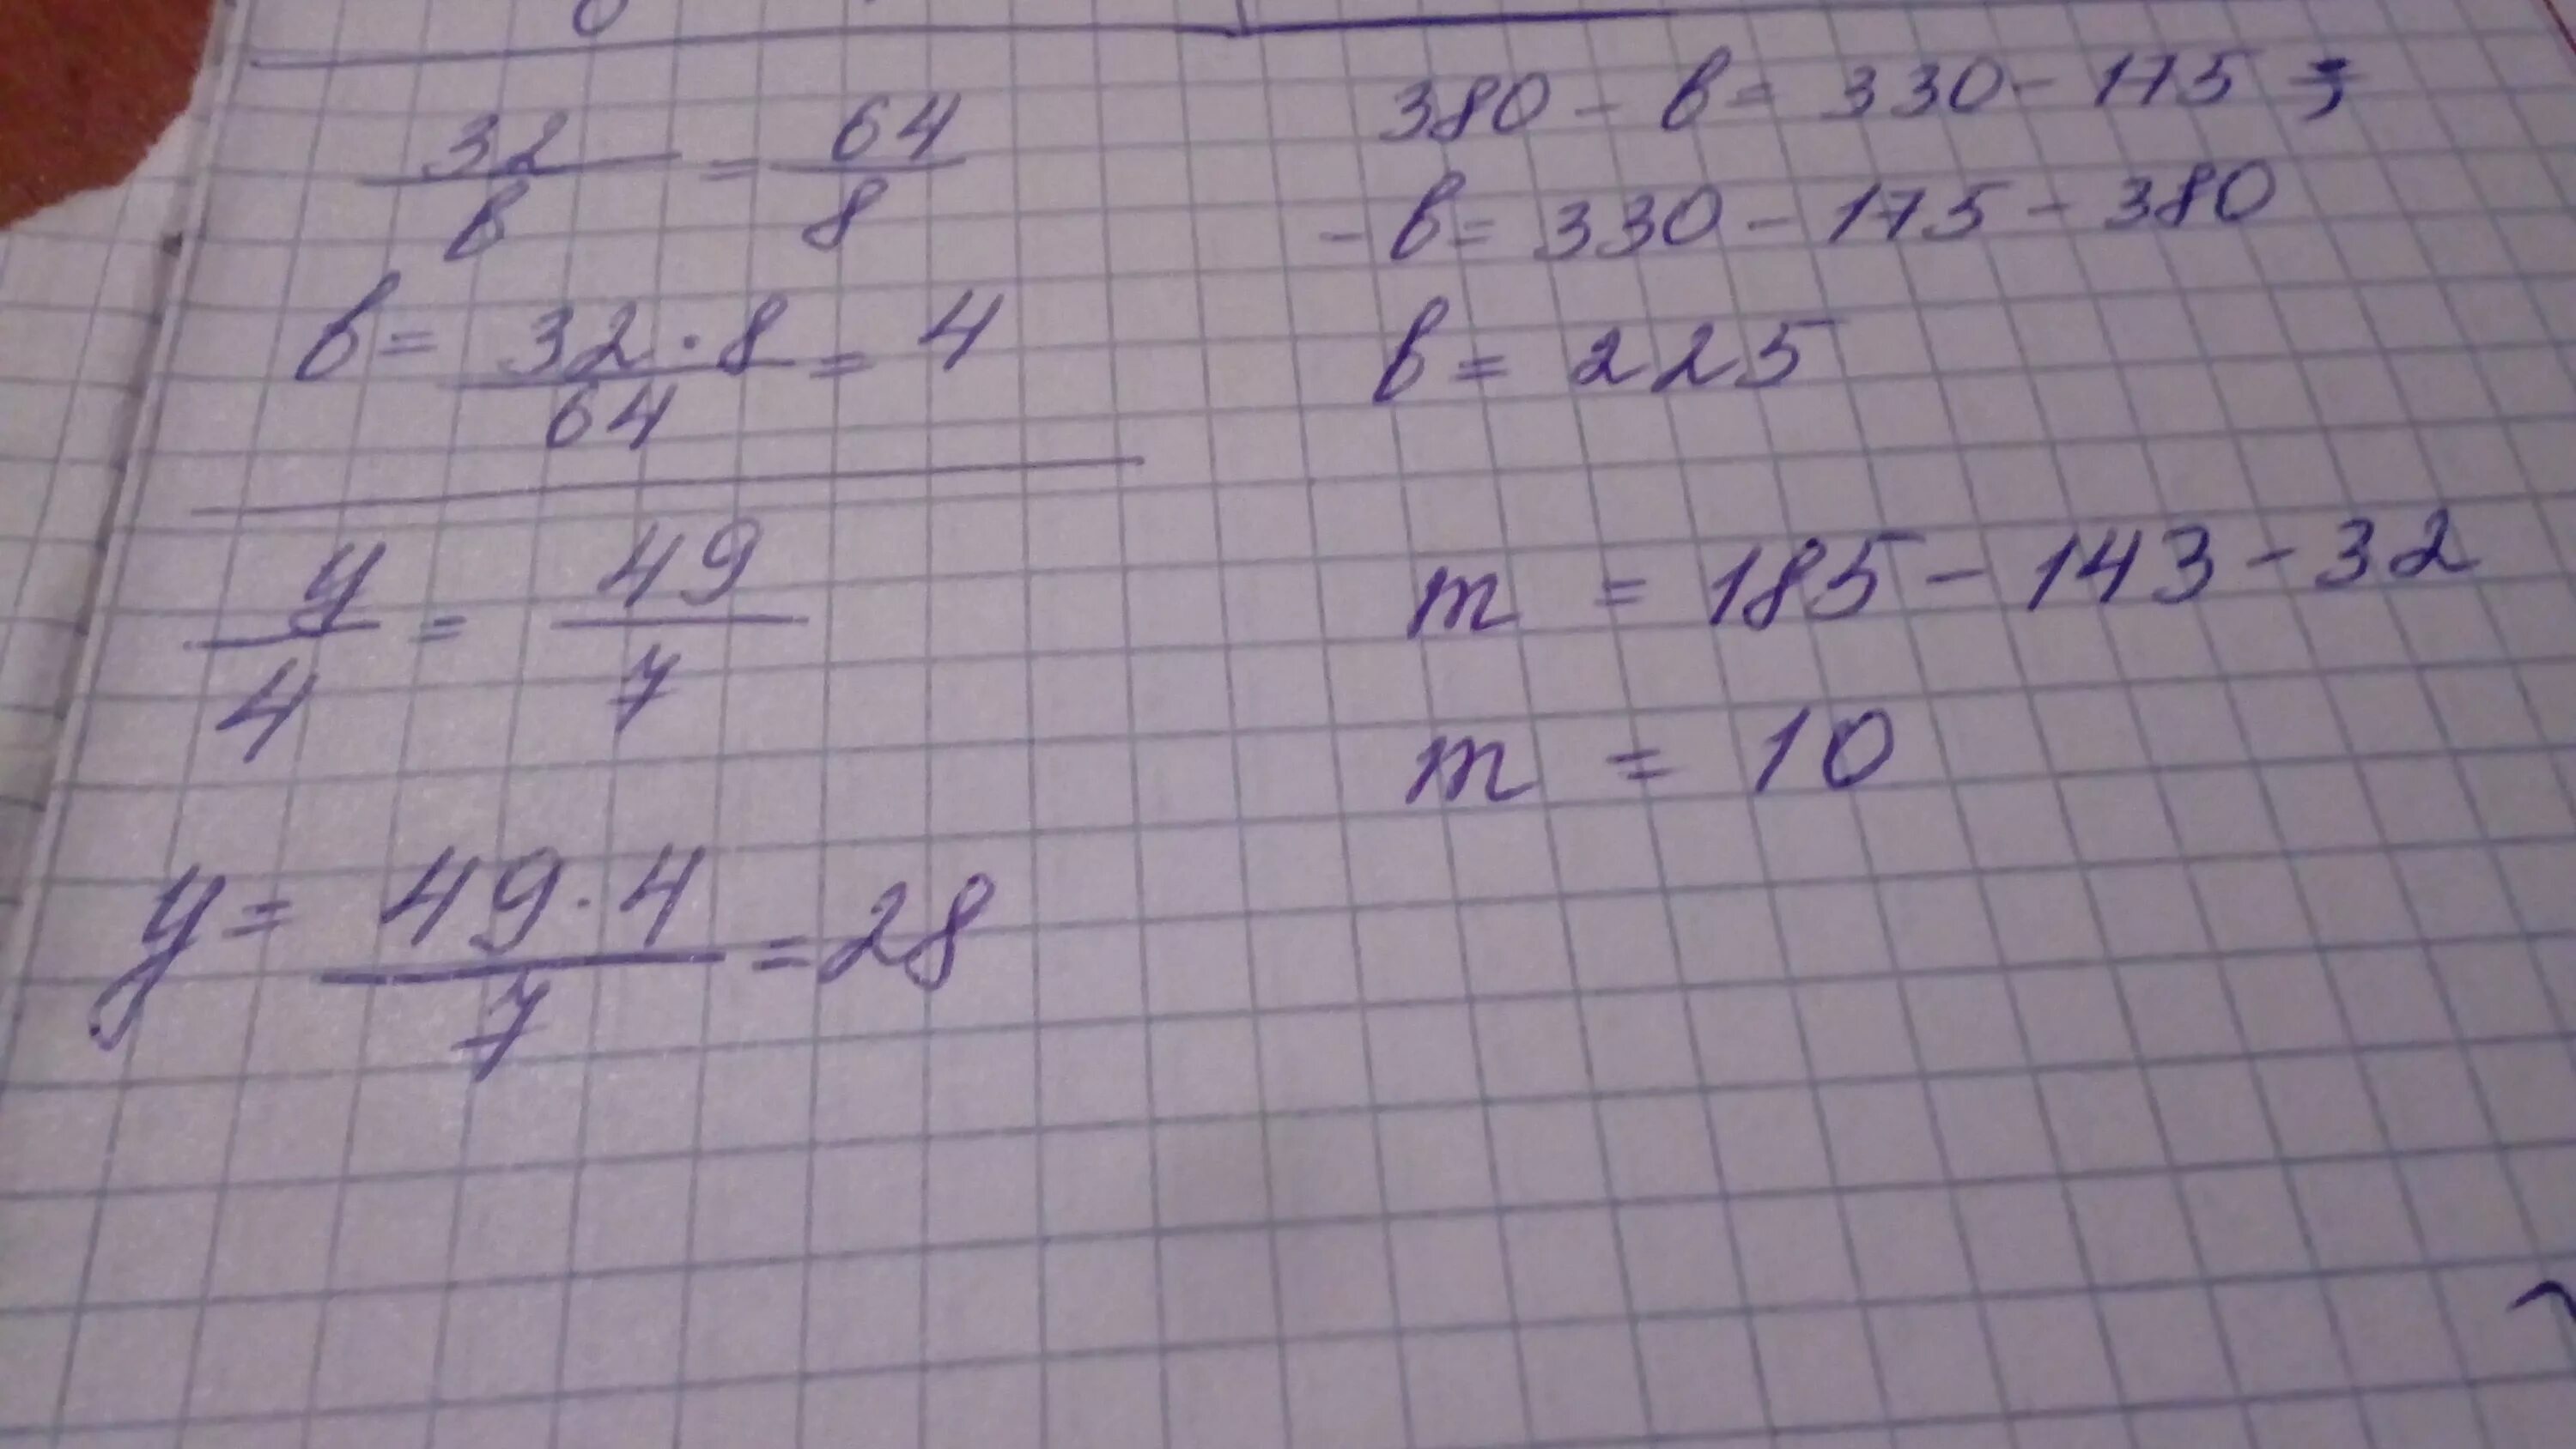 32/в = 64/8
в = 32·8/64 = 4
у/4 = 49/7
у = 49·4/7 = 28
380 - в = 330 - 175;
- в = 330 - 175 - 380
в = 225
m = 185 - 143 - 32
m = 10